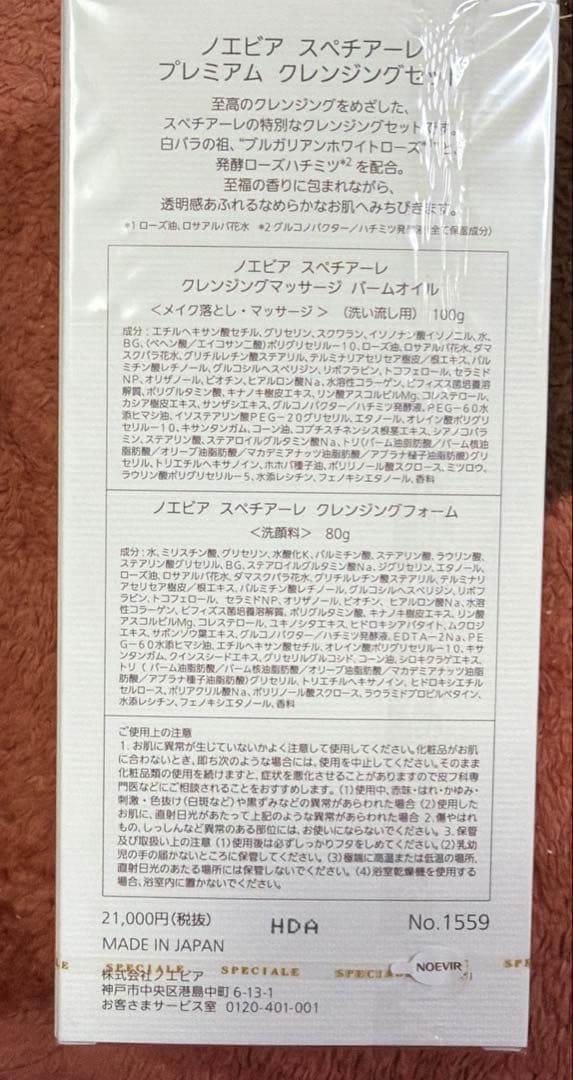 ノエビア スペチアーレ
プレミアム クレンジングセット
至高のクレンジングをめざした、
スペチアーレの特別なクレンジングセットです。
白バラの祖、“ブルガリアンホワイトローズ*¹”と、
発酵ローズハチミツ*² を配合。
至福の香りに包まれながら、
透明感あふれるなめらかなお肌へみちびきます。
*1 ローズ油、ロサアルバ花水 *2 グルコノバクター/ハチミツ発酵液(全て保湿成分)
ノエビア スペチアーレ
クレンジングマッサージ バームオイル
<メイク落とし・マッサージ> (洗い流し用) 100g
成分:エチルヘキサン酸セチル、グリセリン、スクワラン、イソノナン酸イソノニル、水、
BG、(ベヘン酸/エイコサン二酸)ポリグリセリル-10、ローズ油、ロサアルバ花水、ダマ
スクバラ花水、グリチルレチン酸ステアリル、テルミナリアセリセア樹皮/根エキス、パル
ミチン酸レチノール、グルコシルヘスペリジン、リボフラビン、トコフェロール、セラミド
NP、オリザノール、ビオチン、ヒアルロン酸Na、水溶性コラーゲン、ビフィズス菌培養溶
解質、ポリグルタミン酸、キナノキ樹皮エキス、リン酸アスコルビルMg、コレステロール、
カシア樹皮エキス、サンザシエキス、グルコノバクター/ハチミツ発酵液、PEG-60水
添ヒマシ油、イソステアリン酸PEG-20グリセリル、エタノール、オレイン酸ポリグリ
セリル-10、キサンタンガム、コーン油、コプチスチネンシス根茎エキス、シアノコバラ
ミン、ステアリン酸、ステアロイルグルタミン酸Na、トリ(パーム油脂肪酸/パーム核油
脂肪酸/オリーブ油脂肪酸/マカデミアナッツ油脂肪酸/アブラナ種子油脂肪酸)グリ
セリル、トリエチルヘキサノイン、ホホバ種子油、ポリリノール酸スクロース、ミツロウ、
ラウリン酸ポリグリセリル-5、水添レシチン、フェノキシエタノール、香料
ノエビア スペチアーレ クレンジングフォーム
<洗顔料> 80g
成分:水、ミリスチン酸、グリセリン、水酸化K、パルミチン酸、ステアリン酸、ラウリン酸、
ステアリン酸グリセリル、BG、ステアロイルグルタミン酸Na、ジグリセリン、エタノール、
ローズ油、ロサアルバ花水、ダマスクバラ花水、グリチルレチン酸ステアリル、テルミナリ
アセリセア樹皮/根エキス、パルミチン酸レチノール、グルコシルヘスペリジン、リボフ
ラビン、トコフェロール、セラミドNP、オリザノール、ビオチン、ヒアルロン酸Na、水溶
性コラーゲン、ビフィズス菌培養溶解質、ポリグルタミン酸、キナノキ樹皮エキス、リン酸
アスコルビルMg、コレステロール、ユキノシタエキス、ヒドロキシアパタイト、ムクロジ
エキス、サボンソウ葉エキス、グルコノバクター/ハチミツ発酵液、EDTA-2Na、PE
G-60水添ヒマシ油、エチルヘキサン酸セチル、オレイン酸ポリグリセリル-10、キサ
ンタンガム、クインスシードエキス、グリセリルグルコシド、コーン油、シロキクラゲエキス、
トリ(パーム油脂肪酸/パーム核油脂肪酸/オリーブ油脂肪酸/マカデミアナッツ油脂
肪酸/アブラナ種子油脂肪酸)グリセリル、トリエチルヘキサノイン、ヒドロキシエチル
セルロース、ポリアクリル酸Na、ポリリノール酸スクロース、ラウラミドプロピルベタイン、
水添レシチン、フェノキシエタノール、香料
ご使用上の注意
1. お肌に異常が生じていないかよく注意して使用してください。化粧品がお肌
に合わないとき、即ち次のような場合には、使用を中止してください。そのまま
化粧品類の使用を続けますと、症状を悪化させることがありますので皮フ科専
門医などにご相談されることをおすすめします。(1)使用中、赤味・はれ・かゆみ・
刺激・色抜け(白斑など)や黒ずみなどの異常があらわれた場合 (2)使用した
お肌に、直射日光があたって上記のような異常があらわれた場合 2. 傷やはれ
もの、しっしんなど異常のある部位には、お使いにならないでください。3. 保管
及び取扱い上の注意 (1)使用後は必ずしっかりフタをしめてください。(2)乳幼
児の手の届かないところに保管してください。(3)極端に高温または低温の場所、
直射日光のあたる場所には保管しないでください。(4)浴室乾燥機を使用する
場合、浴室内に置かないでください。
21,000円(税抜) HDA No.1559
MADE IN JAPAN
SPECIALE SPECIALE NOEVIR
株式会社ノエビア
神戸市中央区港島中町 6-13-1
お客さまサービス室 0120-401-001